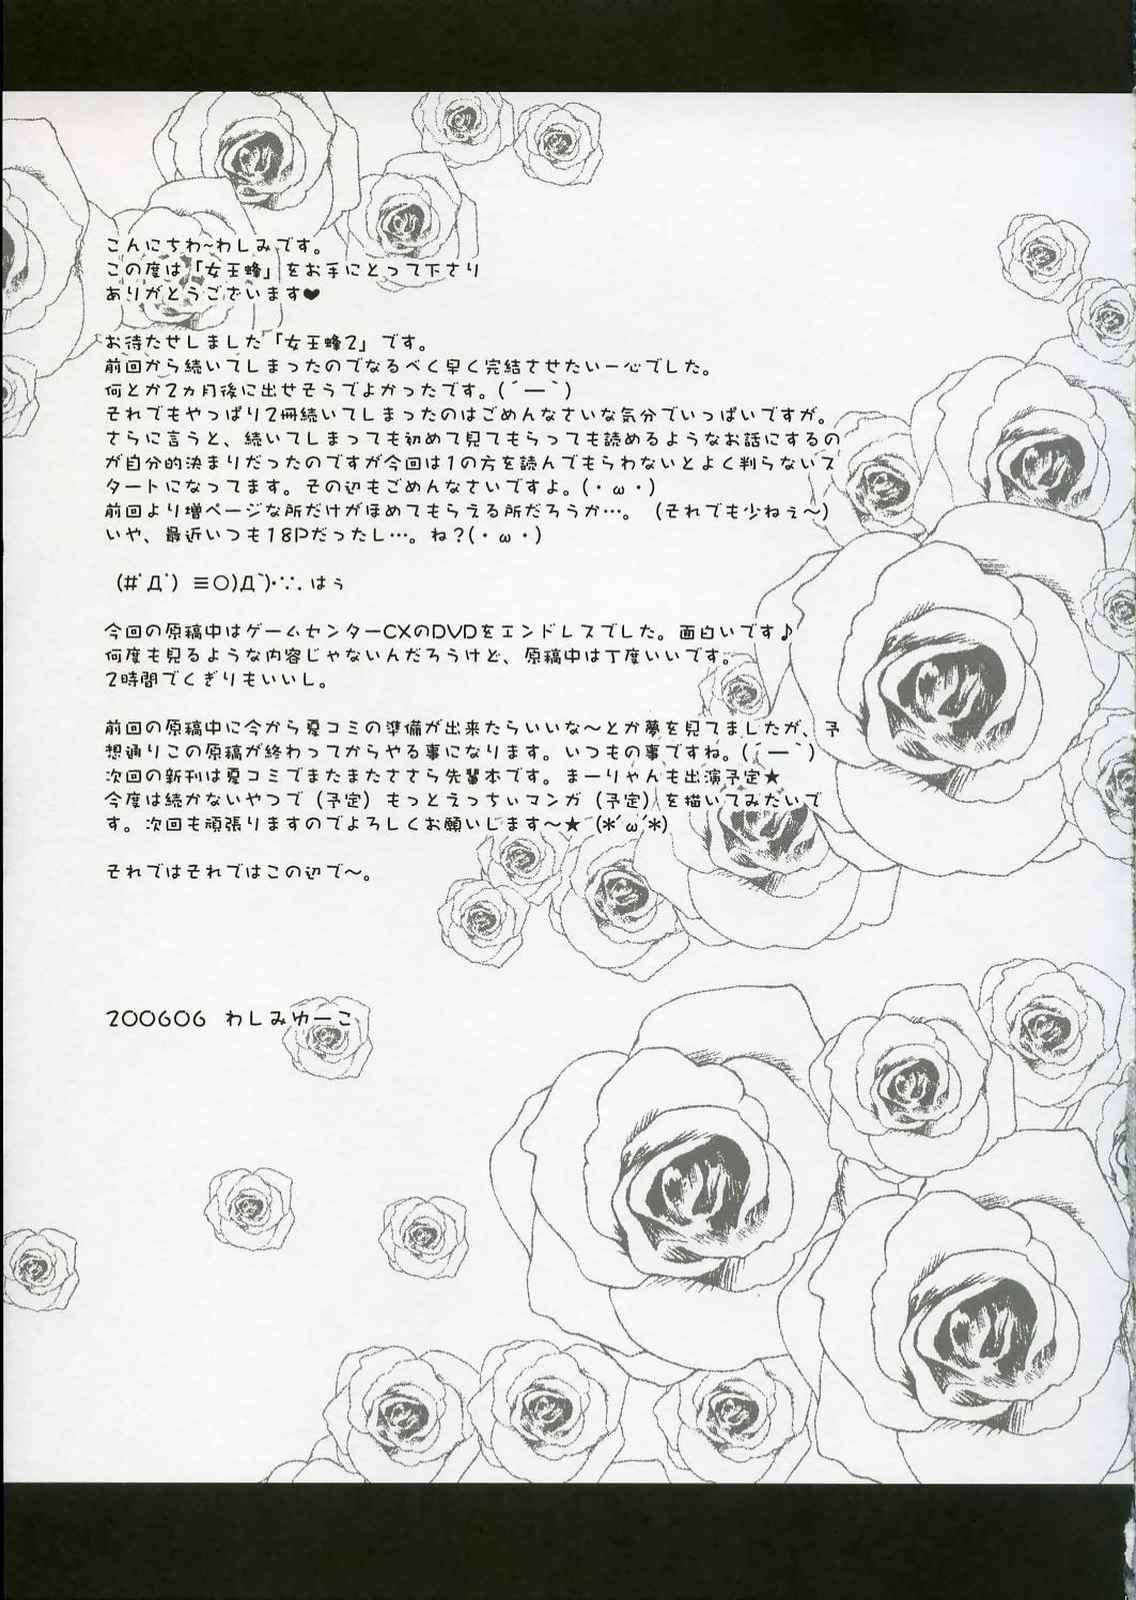 こんにちわ~わしみです。
この度は「女王蜂」をお手にとって下さり
ありがとうございます♥
お待たせしました「女王蜂2」です。
前回から続いてしまったのでなるべく早く完結させたい一心でした。
何とか2ヵ月後に出せそうでよかったです。(´ー｀)
それでもやっぱり2冊続いてしまったのはごめんなさいな気分でいっぱいですが。
さらに言うと、続いてしまっても初めて見てもらっても読めるようなお話にするの
が自分的決まりだったのですが今回は1の方を読んでもらわないとよく判らないス
タートになってます。その辺もごめんなさいですよ。(・ω・)
前回より増ページな所だけがほめてもらえる所だろうか…。（それでも少ねぇ〜）
いや、最近いつも18Pだったし…。ね?(・ω・)
(#ﾟДﾟ) ≡〇)Д`)･∵. はぅ
今回の原稿中はゲームセンターCXのDVDをエンドレスでした。面白いです♪
何度も見るような内容じゃないんだろうけど、原稿中は丁度いいです。
2時間でくぎりもいいし。
前回の原稿中に今から夏コミの準備が出来たらいいな〜とか夢を見てましたが、予
想通りこの原稿が終わってからやる事になります。いつもの事ですね。(´ー｀)
次回の新刊は夏コミでまたまたささら先輩本です。まーりゃんも出演予定★
今度は続かないやつで（予定）もっとえっちぃマンガ（予定）を描いてみたいで
す。次回も頑張りますのでよろしくお願いします〜★ (*´ω`*)
それではそれではこの辺で〜。
200606 わしみゆーこ